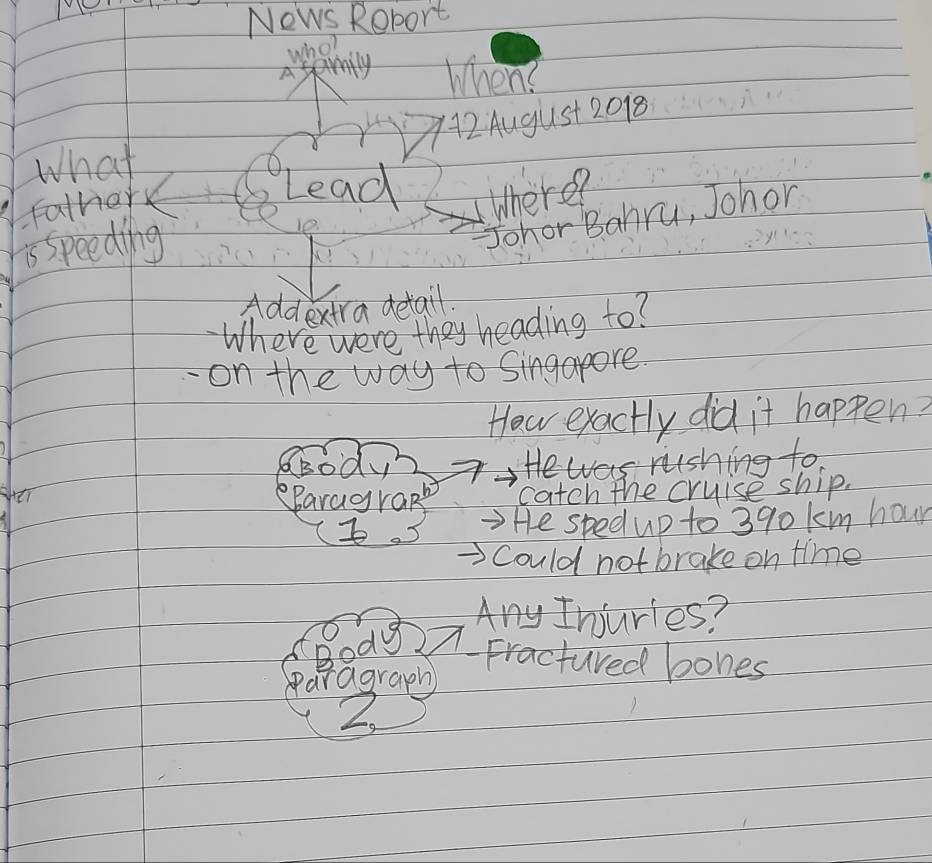 News Roport
Who?
A family
When?
12 August 2018
What
Father
is speeding
Lead
Where?
Johor Bahru, Johor
Add extra detail.
-Where were they heading to?
-on the way to Singapore.
How exactly did it happen?
Body
Paragraph
1
→ He was rushing to
catch the cruise ship.
→ He sped up to 390 km hour
→ Could not brake on time
Body
Paragraph
2
Any Injuries?
-Fractured bones